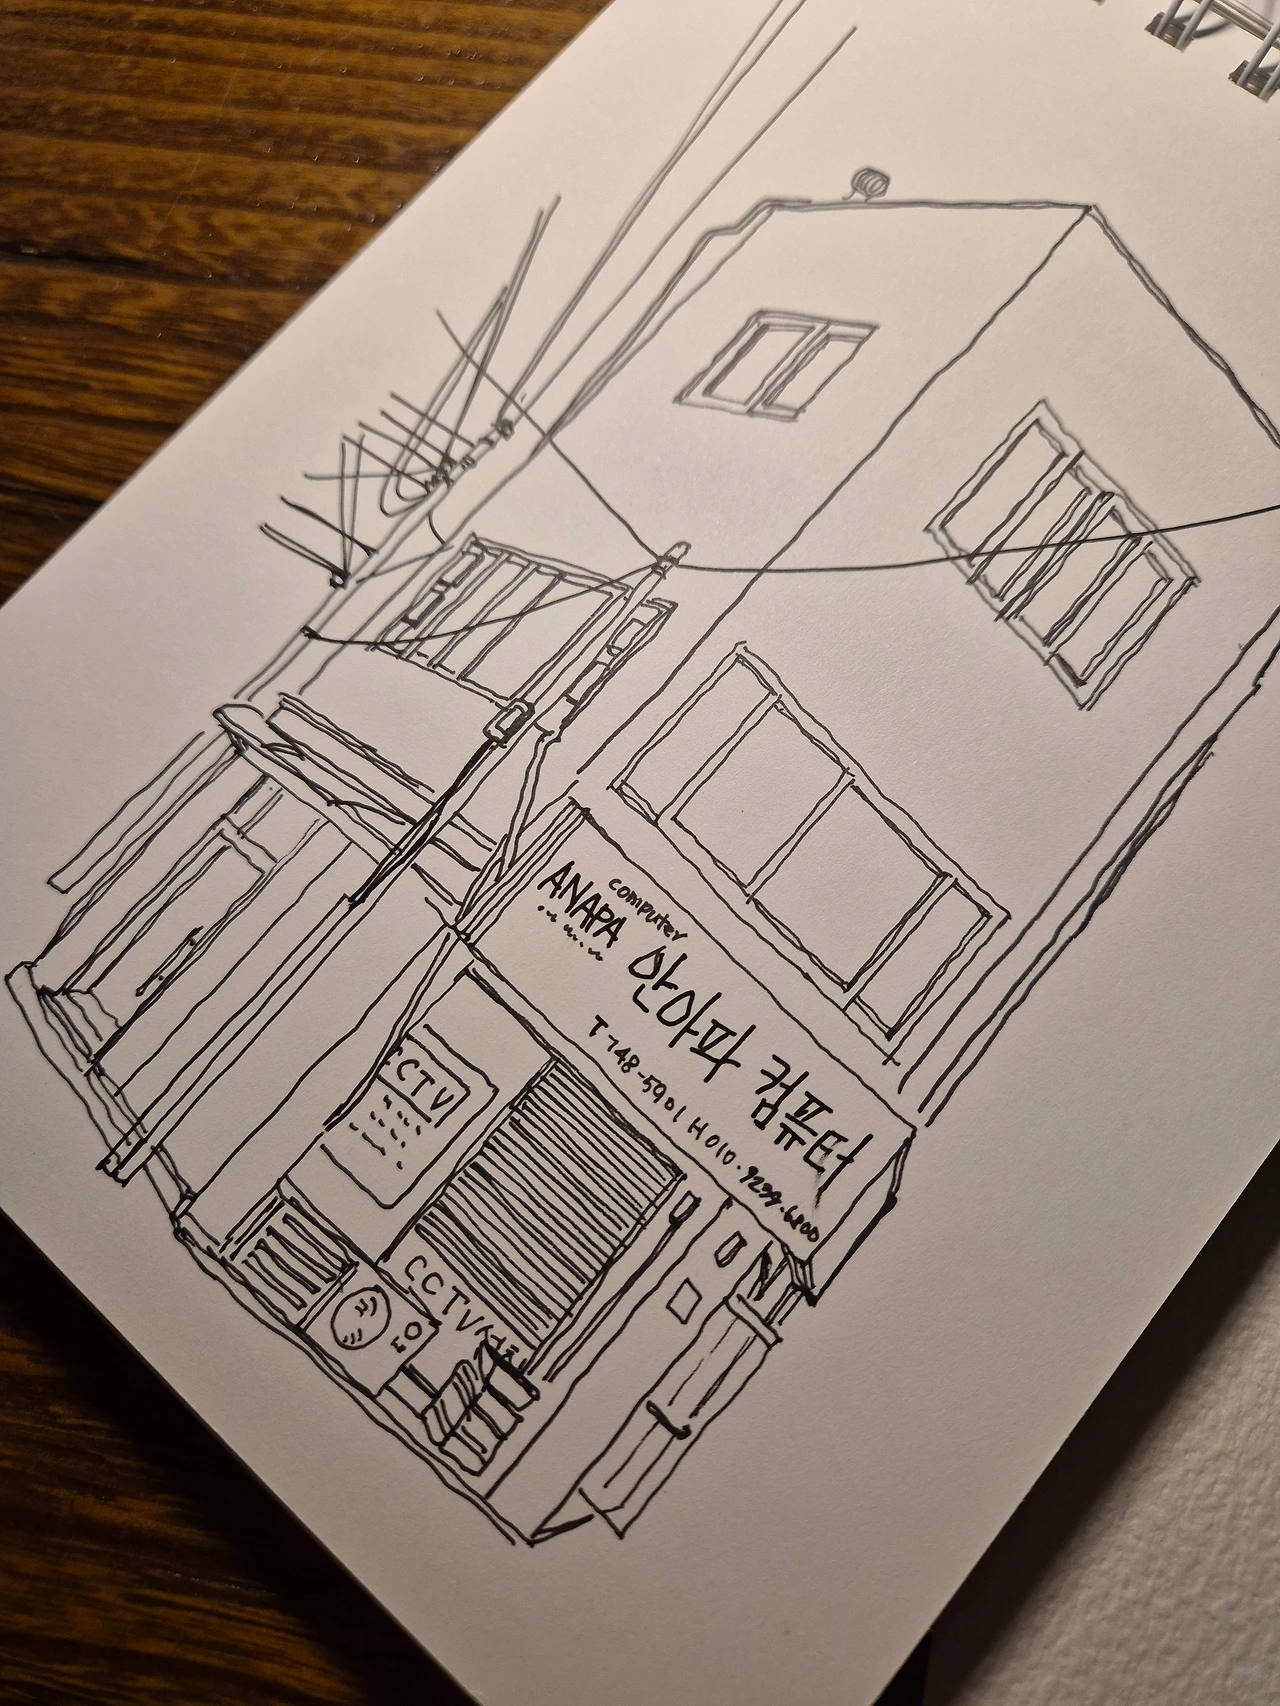 computer
ANAPA 안아파 컴퓨터
T 748-5901 H 010.9239.6800
CCTV
CCTV